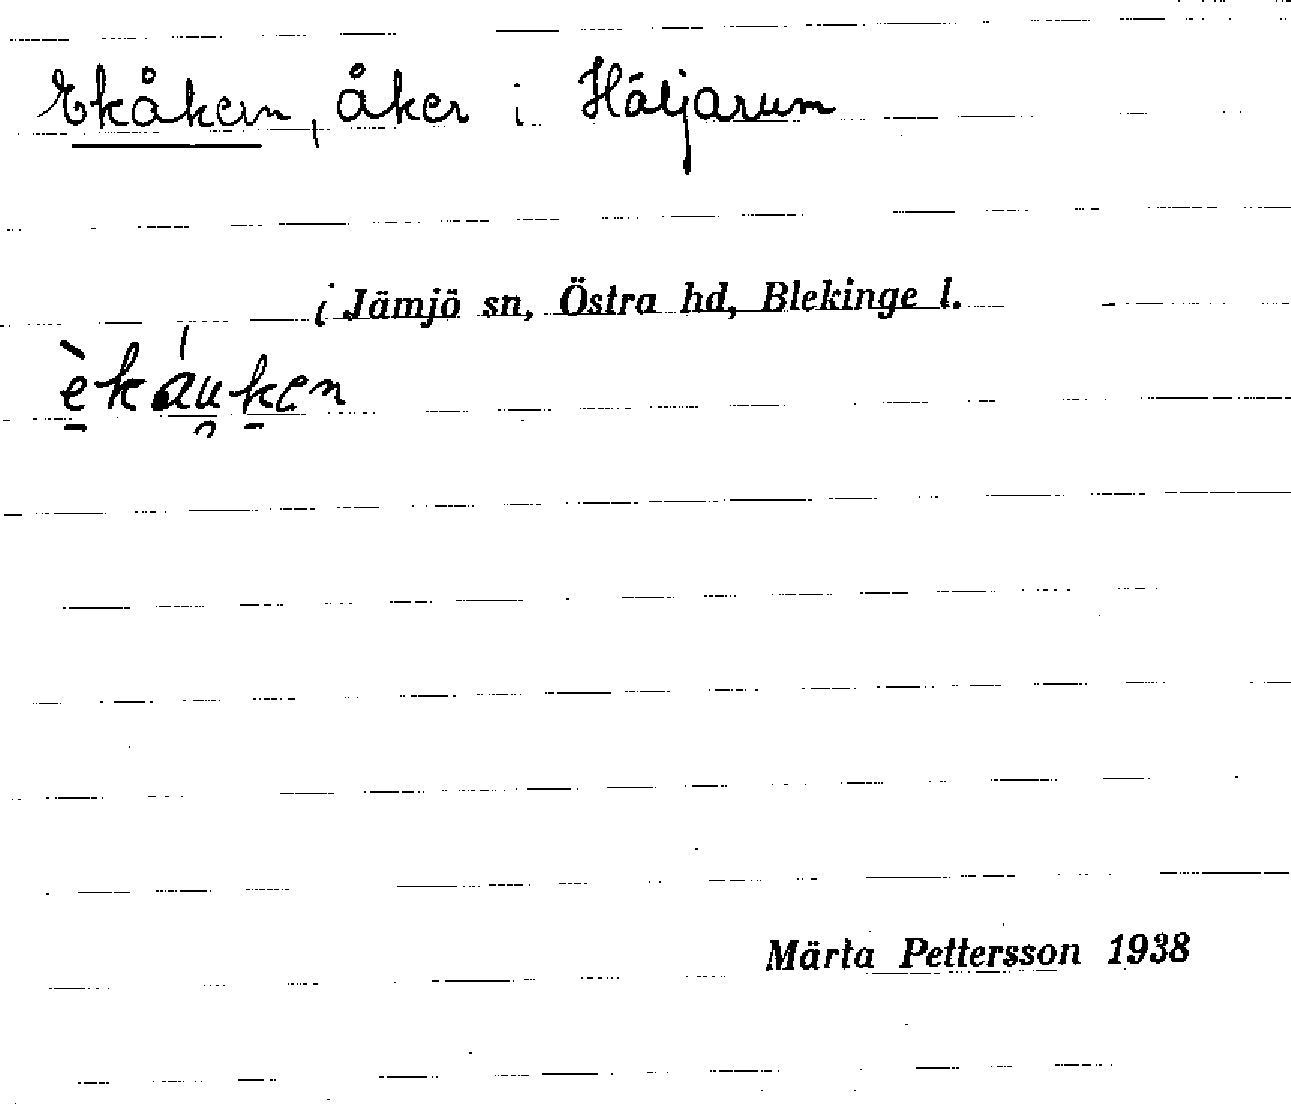 Ekåkern, åker i Häljarum
i Jämjö sn, Östra hd, Blekinge l.
èkáuken
Märta Pettersson 1938